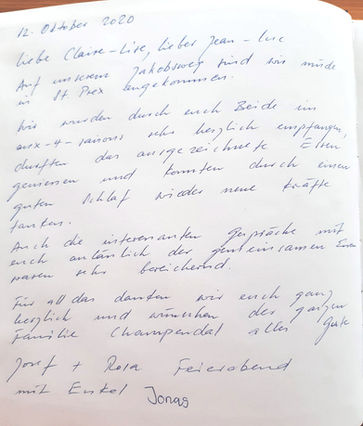 12. Oktober 2020
Liebe Claire-Lise, lieber Jean-Luc
Auf unserem Jakobsweg sind wir müde
in St. Prex angekommen.
Wir wurden durch euch Beide im
aux-4-saisons sehr herzlich empfangen,
durften das ausgezeichnete Essen
geniessen und konnten durch einen
guten Schlaf wieder neue Kräfte
tanken.
Auch die interessanten Gespräche mit
euch anlässlich der gemeinsamen Essen
waren sehr bereichernd.
Für all das danken wir euch ganz
herzlich und wünschen der ganzen
Familie Champendal alles Gute
Josef + Rosa Feierabend
mit Enkel Jonas